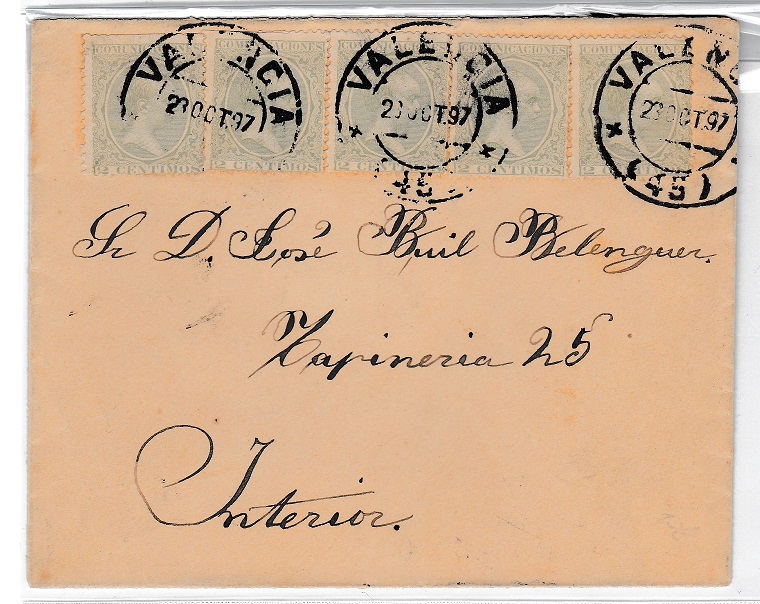 COMUNICACIONES COMUNICACIONES COMUNICACIONES COMUNICACIONES COMUNICACIONES
VALENCIA VALENCIA VALENC
23 OCT.97 23 OCT.97 23 OCT.97
2 CENTIMOS 2 CENTIMOS 2 CENTIMOS 2 CENTIMOS 2 CENTIMOS
(45) (45)
Sr D. José Buil Belenguer.
Tapineria 25
Interior.